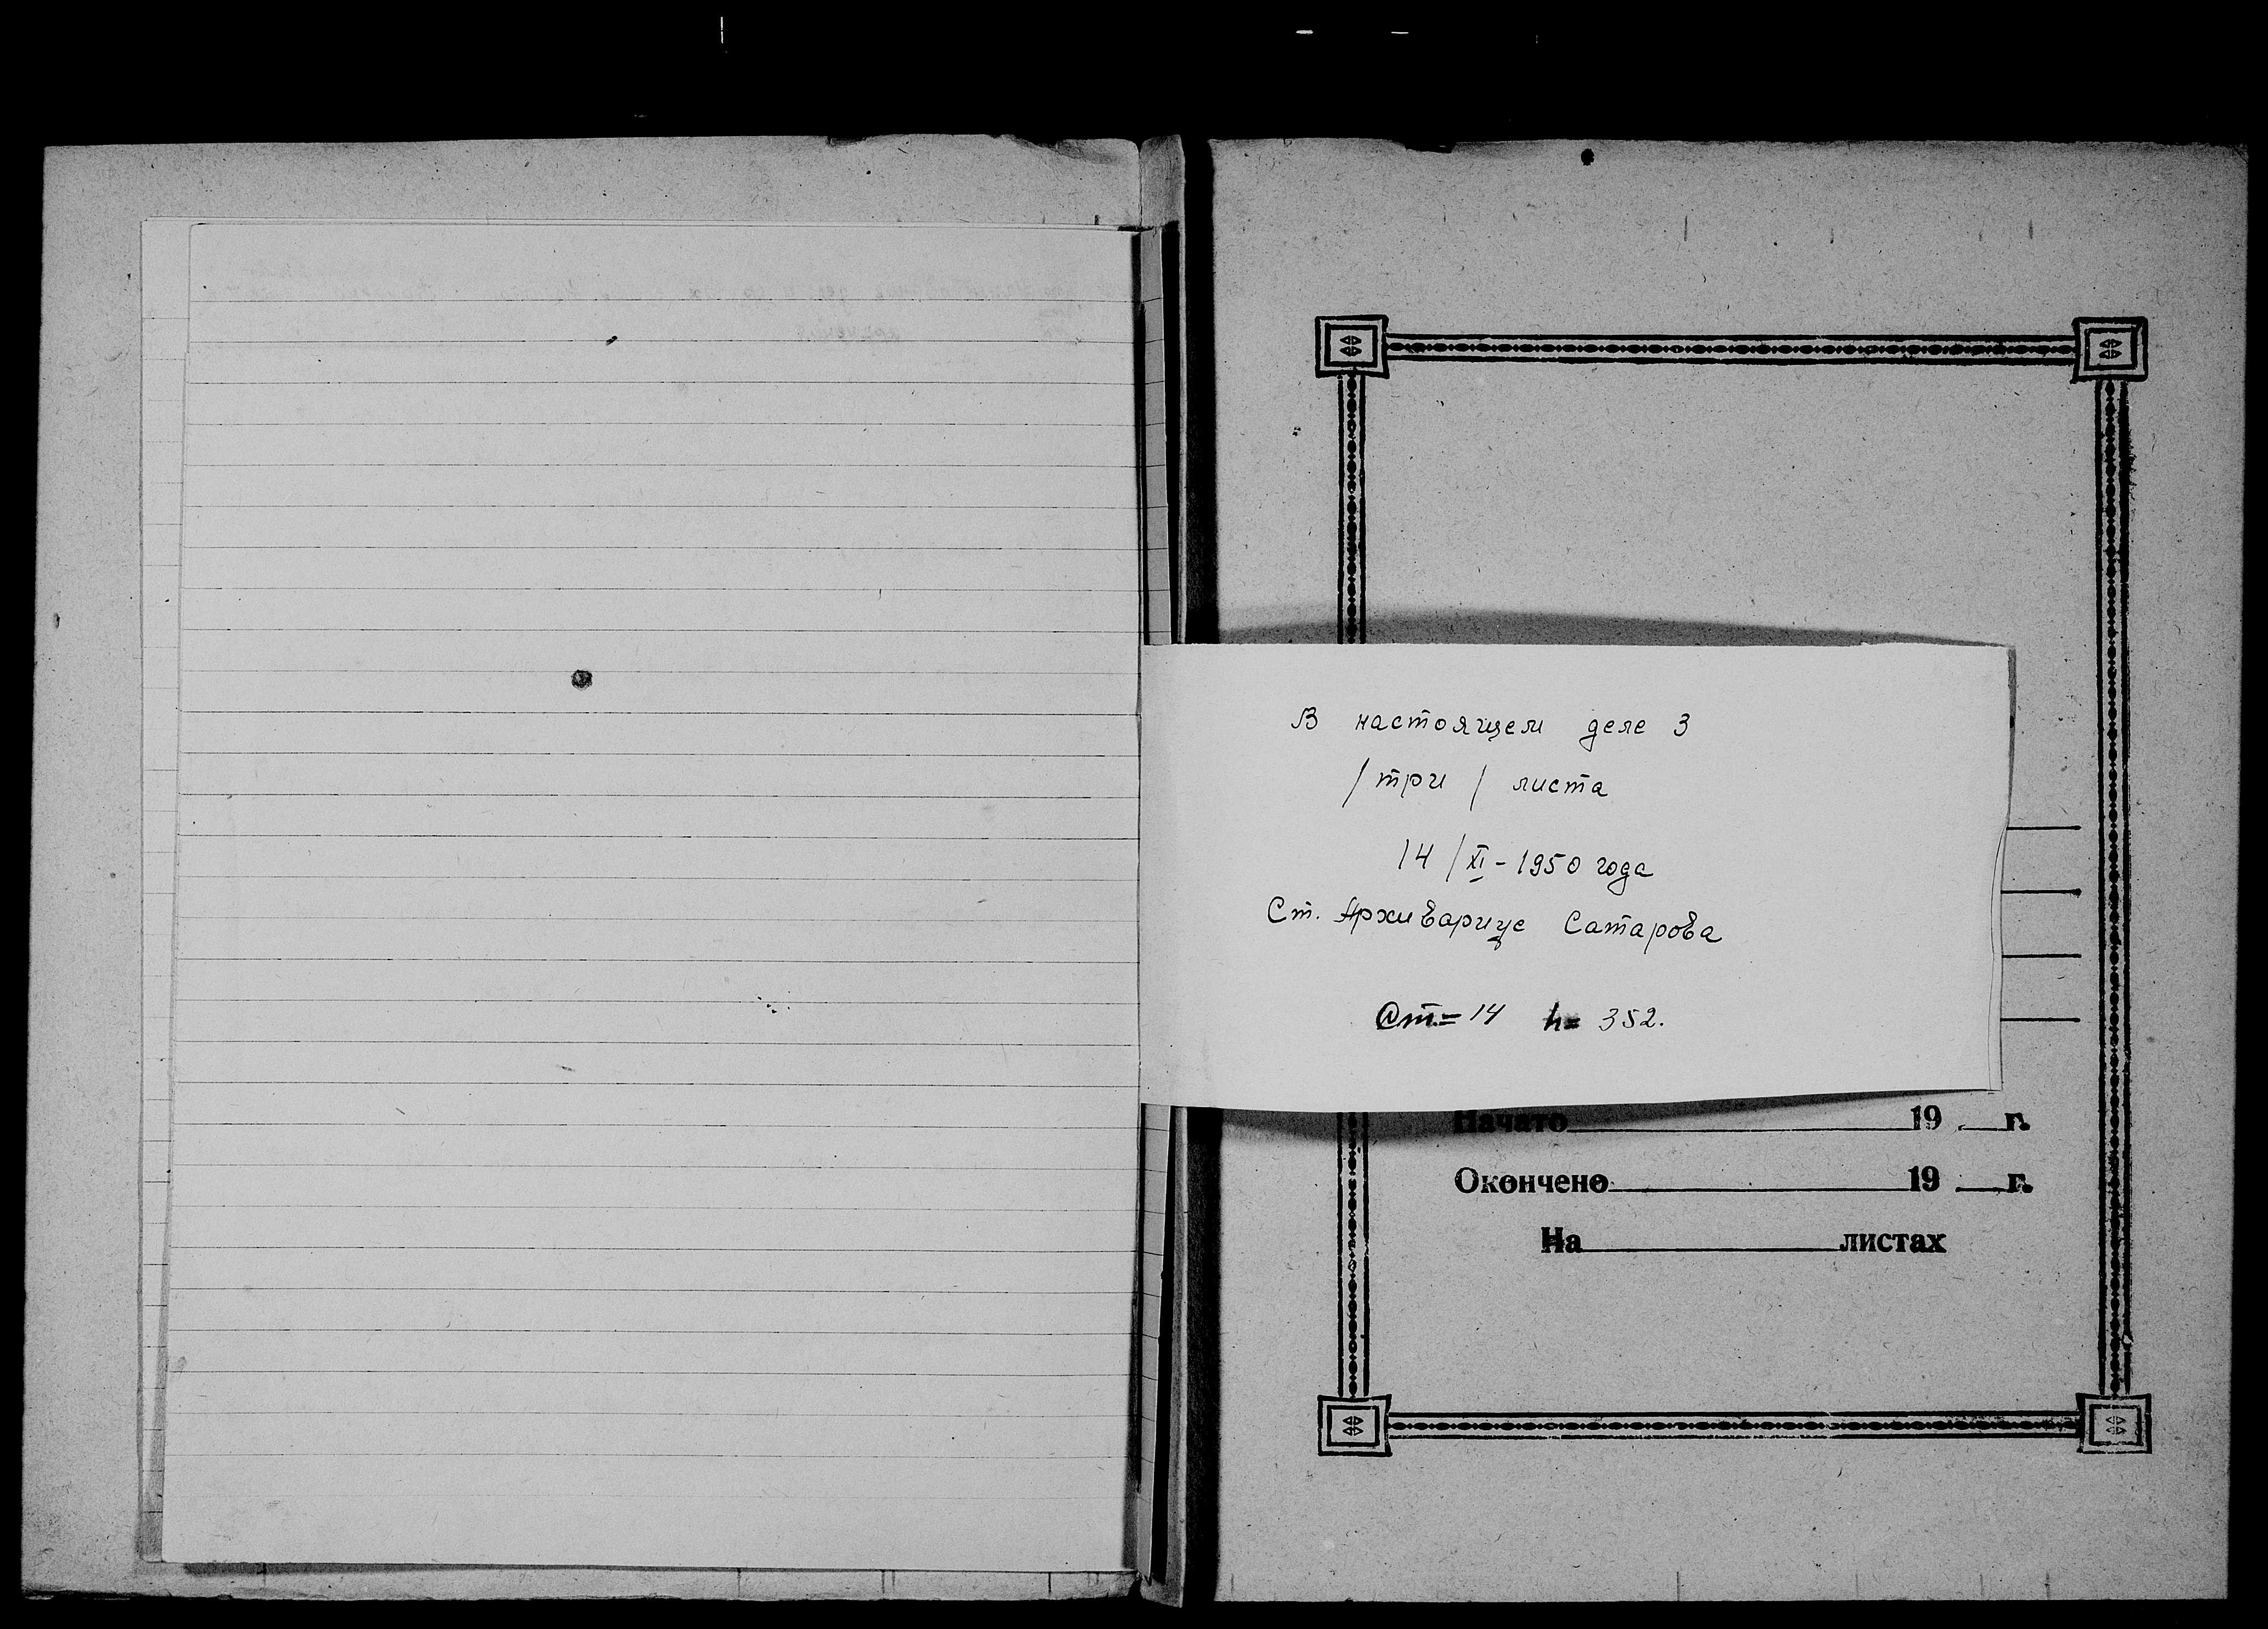 В настоящем деле 3
/ три / листа
14 / XI - 1950 года
Ст. Архиварице Сатарова
Ст.= 14 h= 352.
Начато 19 г.
Окончено 19 г.
На листах